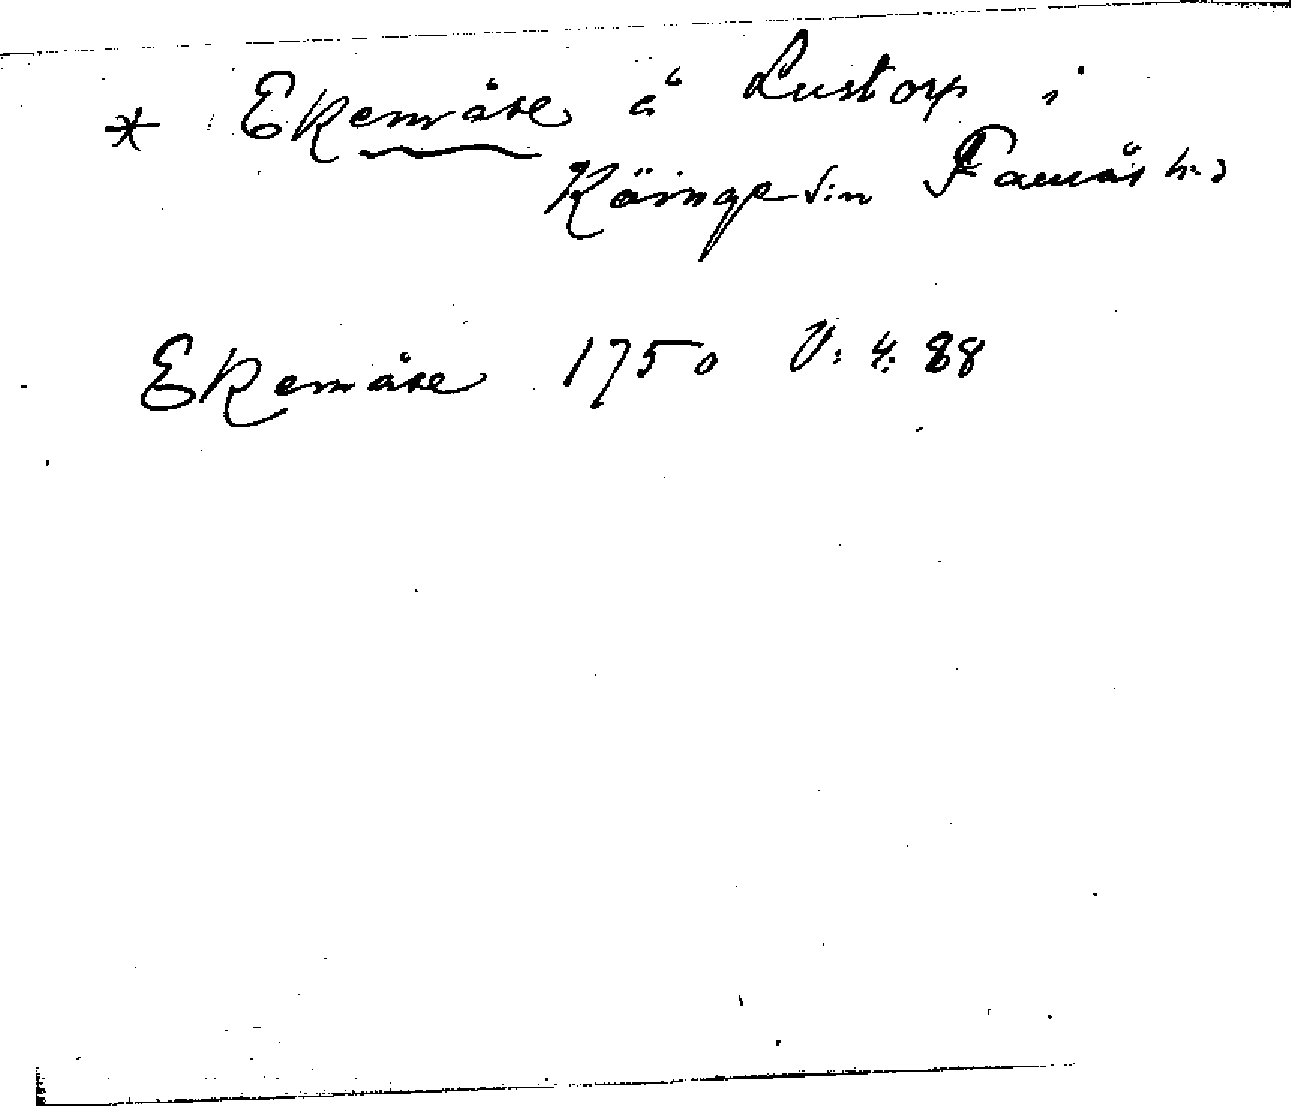 * Ekemåse å Lustorp i
Käinge s:n Fauråsh:d
Ekemåse 1750 V: 4: 88